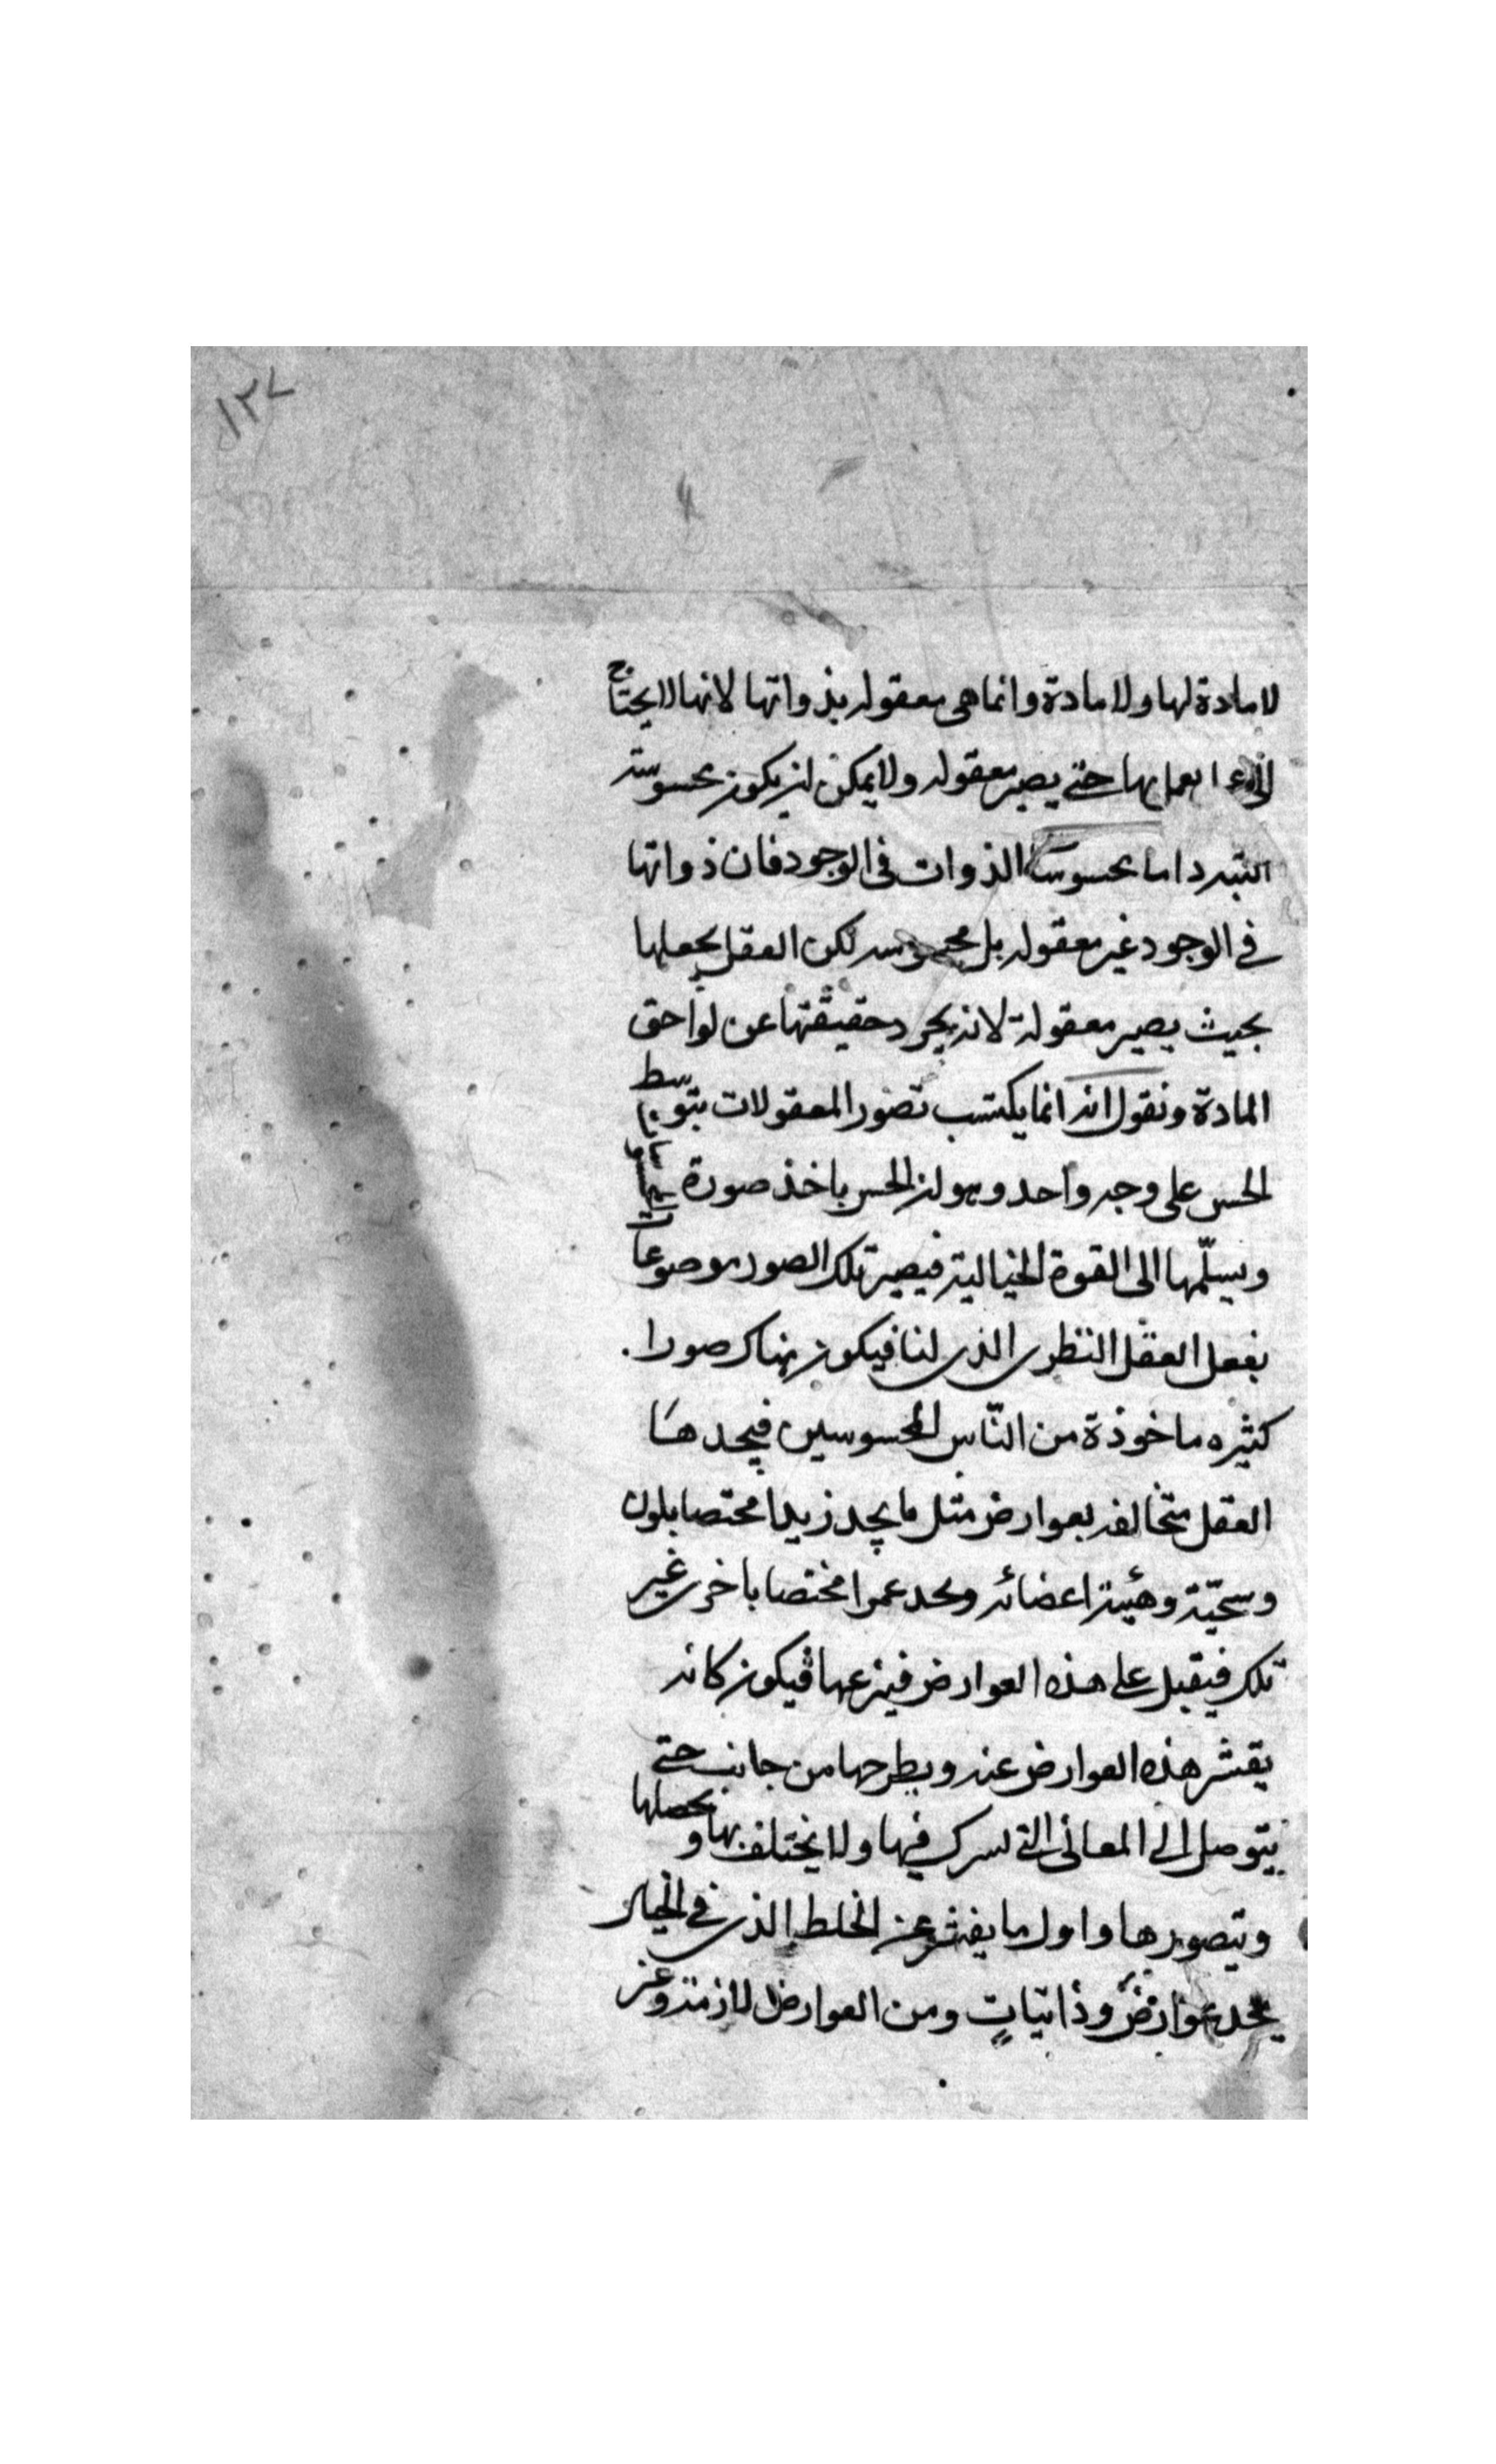 ١٣٧
لا مادة لها ولا مادة وانما هى معقولة بذواتها لانها لا يحتاج
ا يعمل بها حتى يصير معقوله ولا يمكن ان يكون محسوسة
البتة واما محسوسة الذوات فى الوجود فان ذواتها
فى الوجود غير معقوله بل محسوسه لكن العقل يجعلها
بحيث يصير معقولة لانه يجرد حقيقتها عن لواحق
المادة ونقول انه انما يكتسب تصور المعقولات بتوسط
الحس على وجه واحد وهو ان الحس ياخذ صورة
ويسلّمها الى القوة الخيالية فيصير تلك الصور موضوعات
بفعل العقل النظرى الذى لنا فيكون هناك صورا.
كثيره ماخوذة من النّاس المحسوسين فيجدها
العقل متخالفه بعوارض مثل ما يجد زيدا مختصا بلون
وسحيّة وهئية اعضائه ويجد عمرا مختصا باخرى غير
تلك فيقبل على هذه العوارض فينزعها فيكون كانه
يقشر هذه العوارض عنه ويطرحها من جانب حتى
يتوصل الى المعانى التى يشترك فيها ولا يختلف بها ويحصلها
ويتصورها واول ما يفتش عن الخلط الذى فى الخيال
يجد عوارض وذاتيات ومن العوارض لازمة وعن